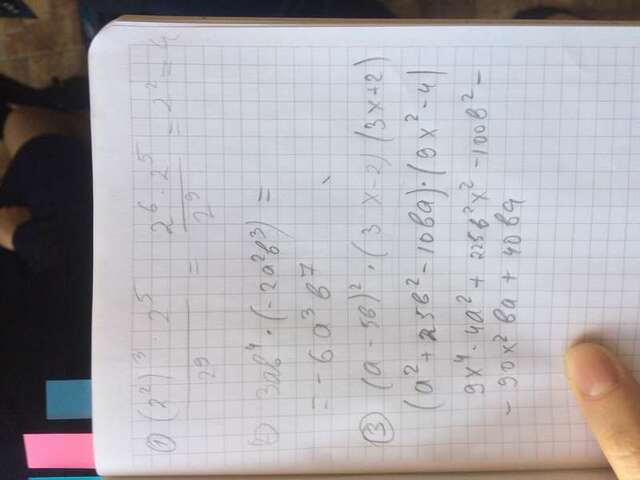 ① (2²)³ · 2⁵ / 2⁹ = 2⁶ · 2⁵ / 2⁹ = 2² = 4
② 3ab⁴ · (-2a²b³) =
= -6a³b⁷
③ (a - 5b)² · (3x-2)(3x+2)
(a² + 25b² - 10ba) · (9x² - 4)
9x⁴ - 4a² + 225b²x² - 100b² -
- 90x²ba + 40ba